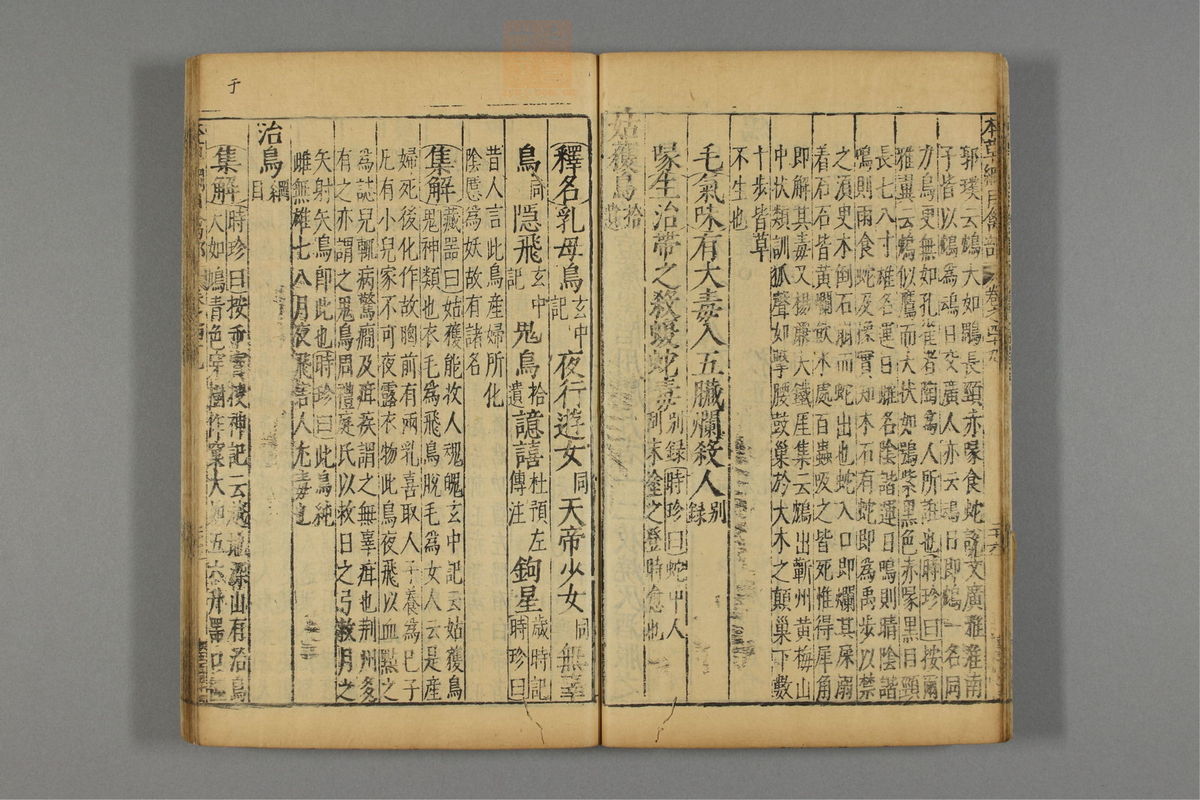 郭璞云鴆大如鵰長頸赤喙食蛇說文廣雅淮南
子皆以鴆為運日交廣人亦云運日即鴆一名同
力鳥更無如孔雀者陶為人所誑也時珍曰按爾
雅翼云鴆似鷹而大狀如鴞紫黑色赤喙黑目頸
長七八寸雄名運日雌名陰諧運日鳴則晴陰諧
鳴則雨食蛇及橡實知木石有蛇即為禹步以禁
之須臾木倒石崩而蛇出也蛇入口即爛其屎溺
着石石皆黃爛飲水處百蟲吸之皆死惟得犀角
即解其毒又楊廉夫鐵厓集云鴆出蘄州黃梅山
中狀類訓狐聲如擊腰鼓巢於大木之顛巢下數
十步皆草
不生也
毛氣味有大毒入五臟爛殺人别錄
喙主治帶之殺蝮蛇毒别錄時珍曰蛇中人
刮末塗之登時愈也
姑獲鳥拾遺
釋名乳母鳥玄中記夜行遊女同天帝少女同無辜
鳥同隱飛玄中記鬼鳥拾遺譩譆杜預左傳注鉤星歲時記時珍曰
昔人言此鳥產婦所化
陰慝為妖故有諸名
集解藏器曰姑獲能收人魂魄玄中記云姑獲鳥
鬼神類也衣毛為飛鳥脫毛為女人云是產
婦死後化作故胸前有兩乳喜取人子養為己子
凡有小兒家不可夜露衣物此鳥夜飛以血點之
為誌兒輒病驚癇及疳疾謂之無辜疳也荊州多
有之亦謂之鬼鳥周禮庭氏以救日之弓救月之
矢射矢鳥即此也時珍曰此鳥純
雌無雄七八月夜飛害人尤毒也
治鳥綱目
集解時珍曰按干寶搜神記云越地深山有治鳥
大如鳩青色穿樹作窠大如五六升器口徑
于